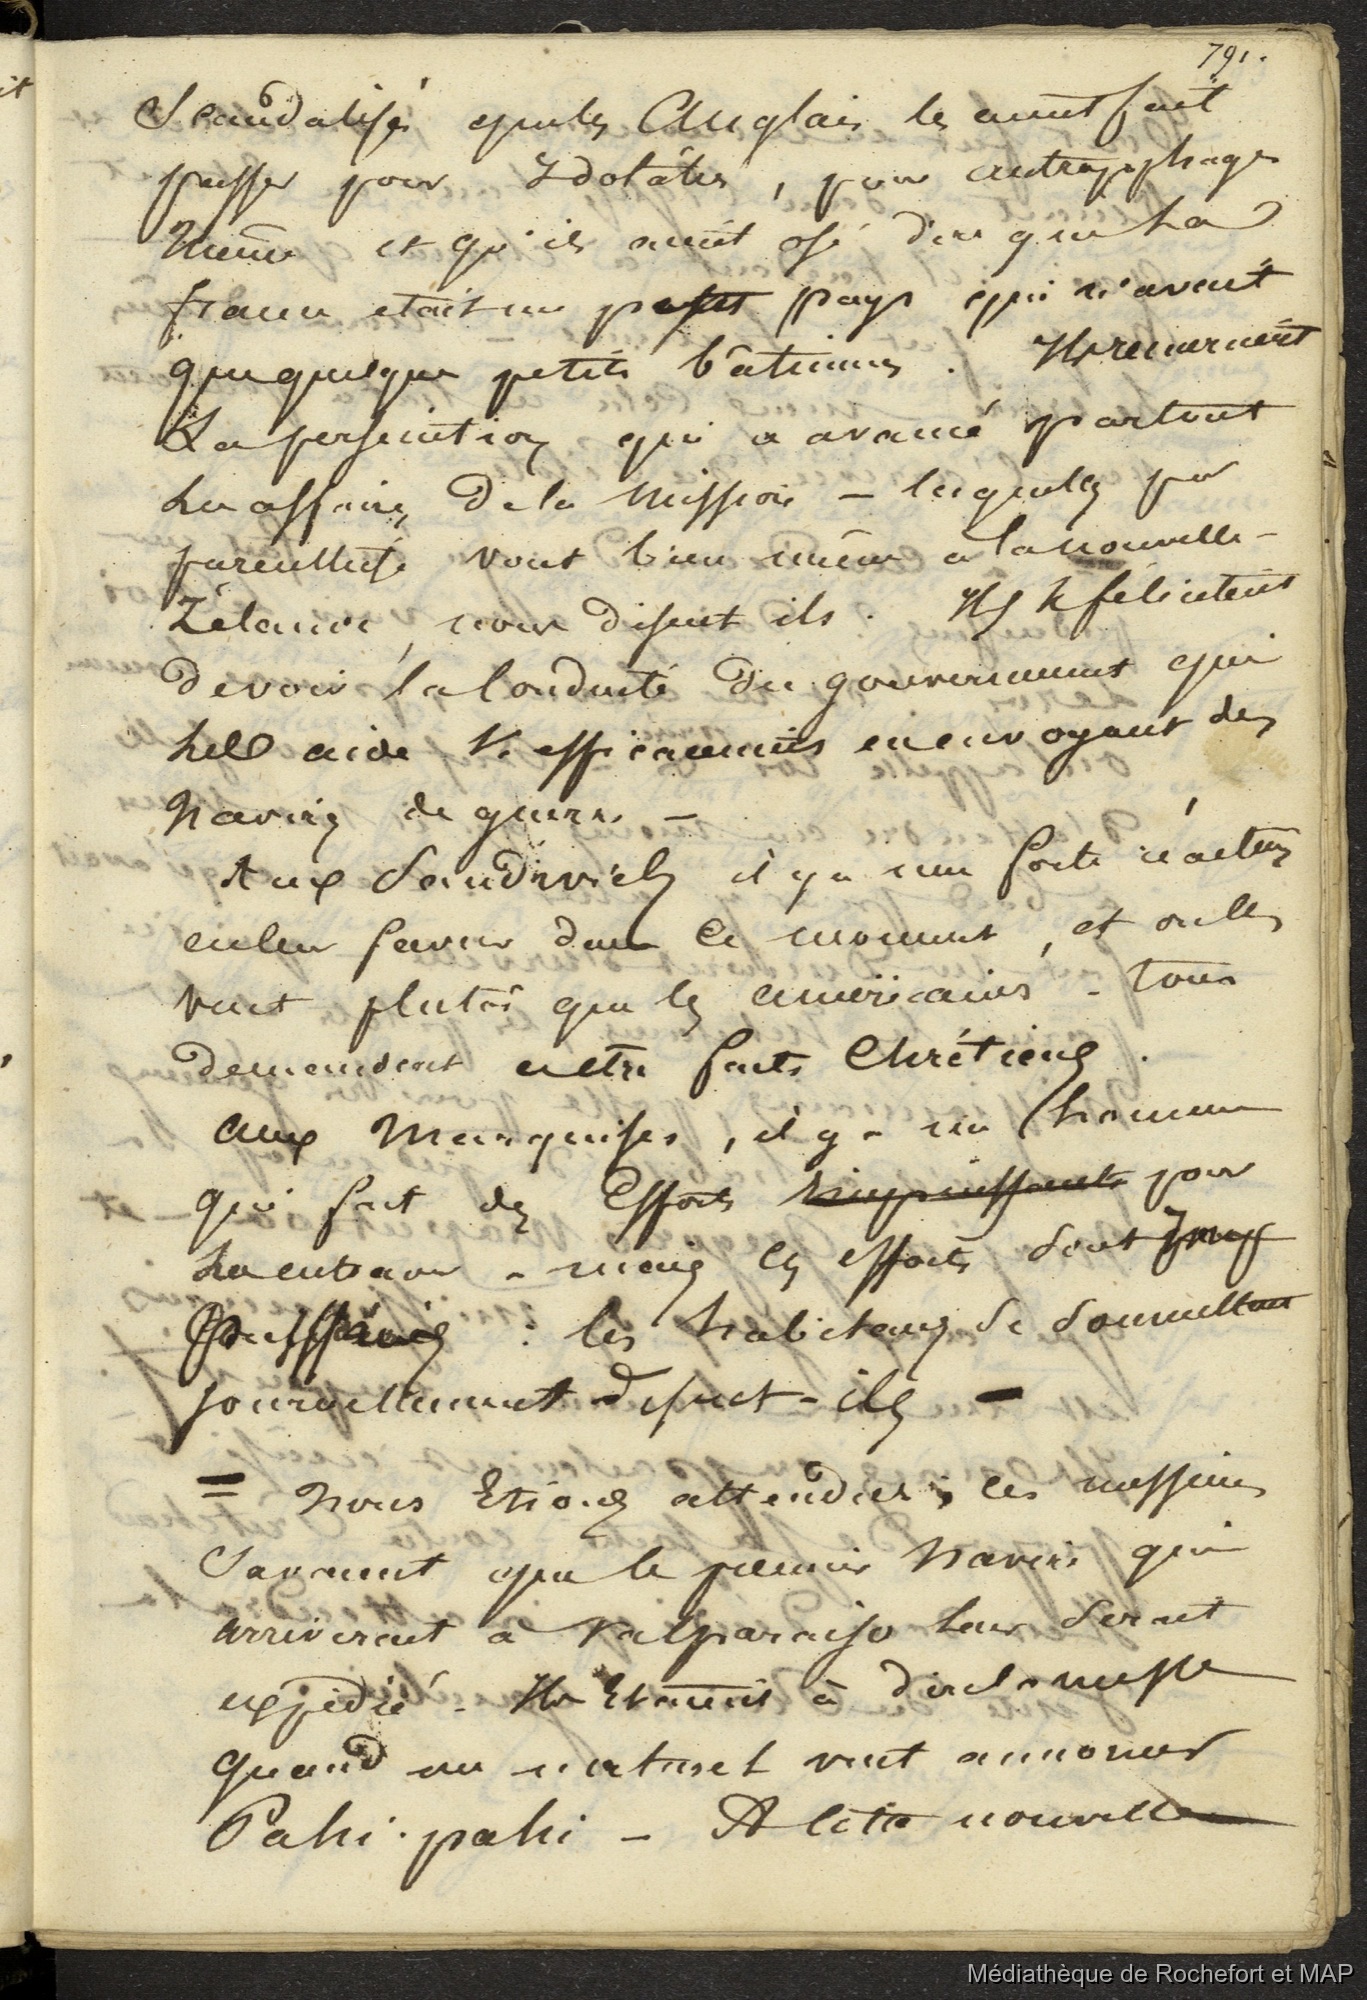 791.
Scandalisés que les Anglais les aient fait
passer pour Idolâtres, pour antropophages
même et qu'ils aient osé dire que La
france etait un petit pays qui n'avait
que quelques petits bâtimens. Ils remercient
La persécution qui a avancé partout
les affaires De la Mission — lesquelles par
parenthèse vont bien même a la nouvelle-
Zélande, nous disent ils. Ils se félicitent
de voir la Conduite du gouvernement qui
les aide si efficacement en envoyant des
Navires de guerre. —
Aux Sandwich il y a une forte réaction
en leur faveur dans ce moment, et on les
veut plutôt que les américains. tous
demandent a etre faits Chrétiens.
aux Marquises, il y a un homme
qui fait des Efforts impuissants pour
les entraver - mais ces efforts sont Impuis
: les habitans se soumettent
journellement disent-ils —
= Nous Etions attendus; ces messieurs
Savaient que le premier Navire qui
arriverait à Valparaiso leur serait
expédié. Ils Etaient à dire la messe
quand un naturel vint annoncer
Pahi. pahi — A cette nouvelle
Médiathèque de Rochefort et MAP